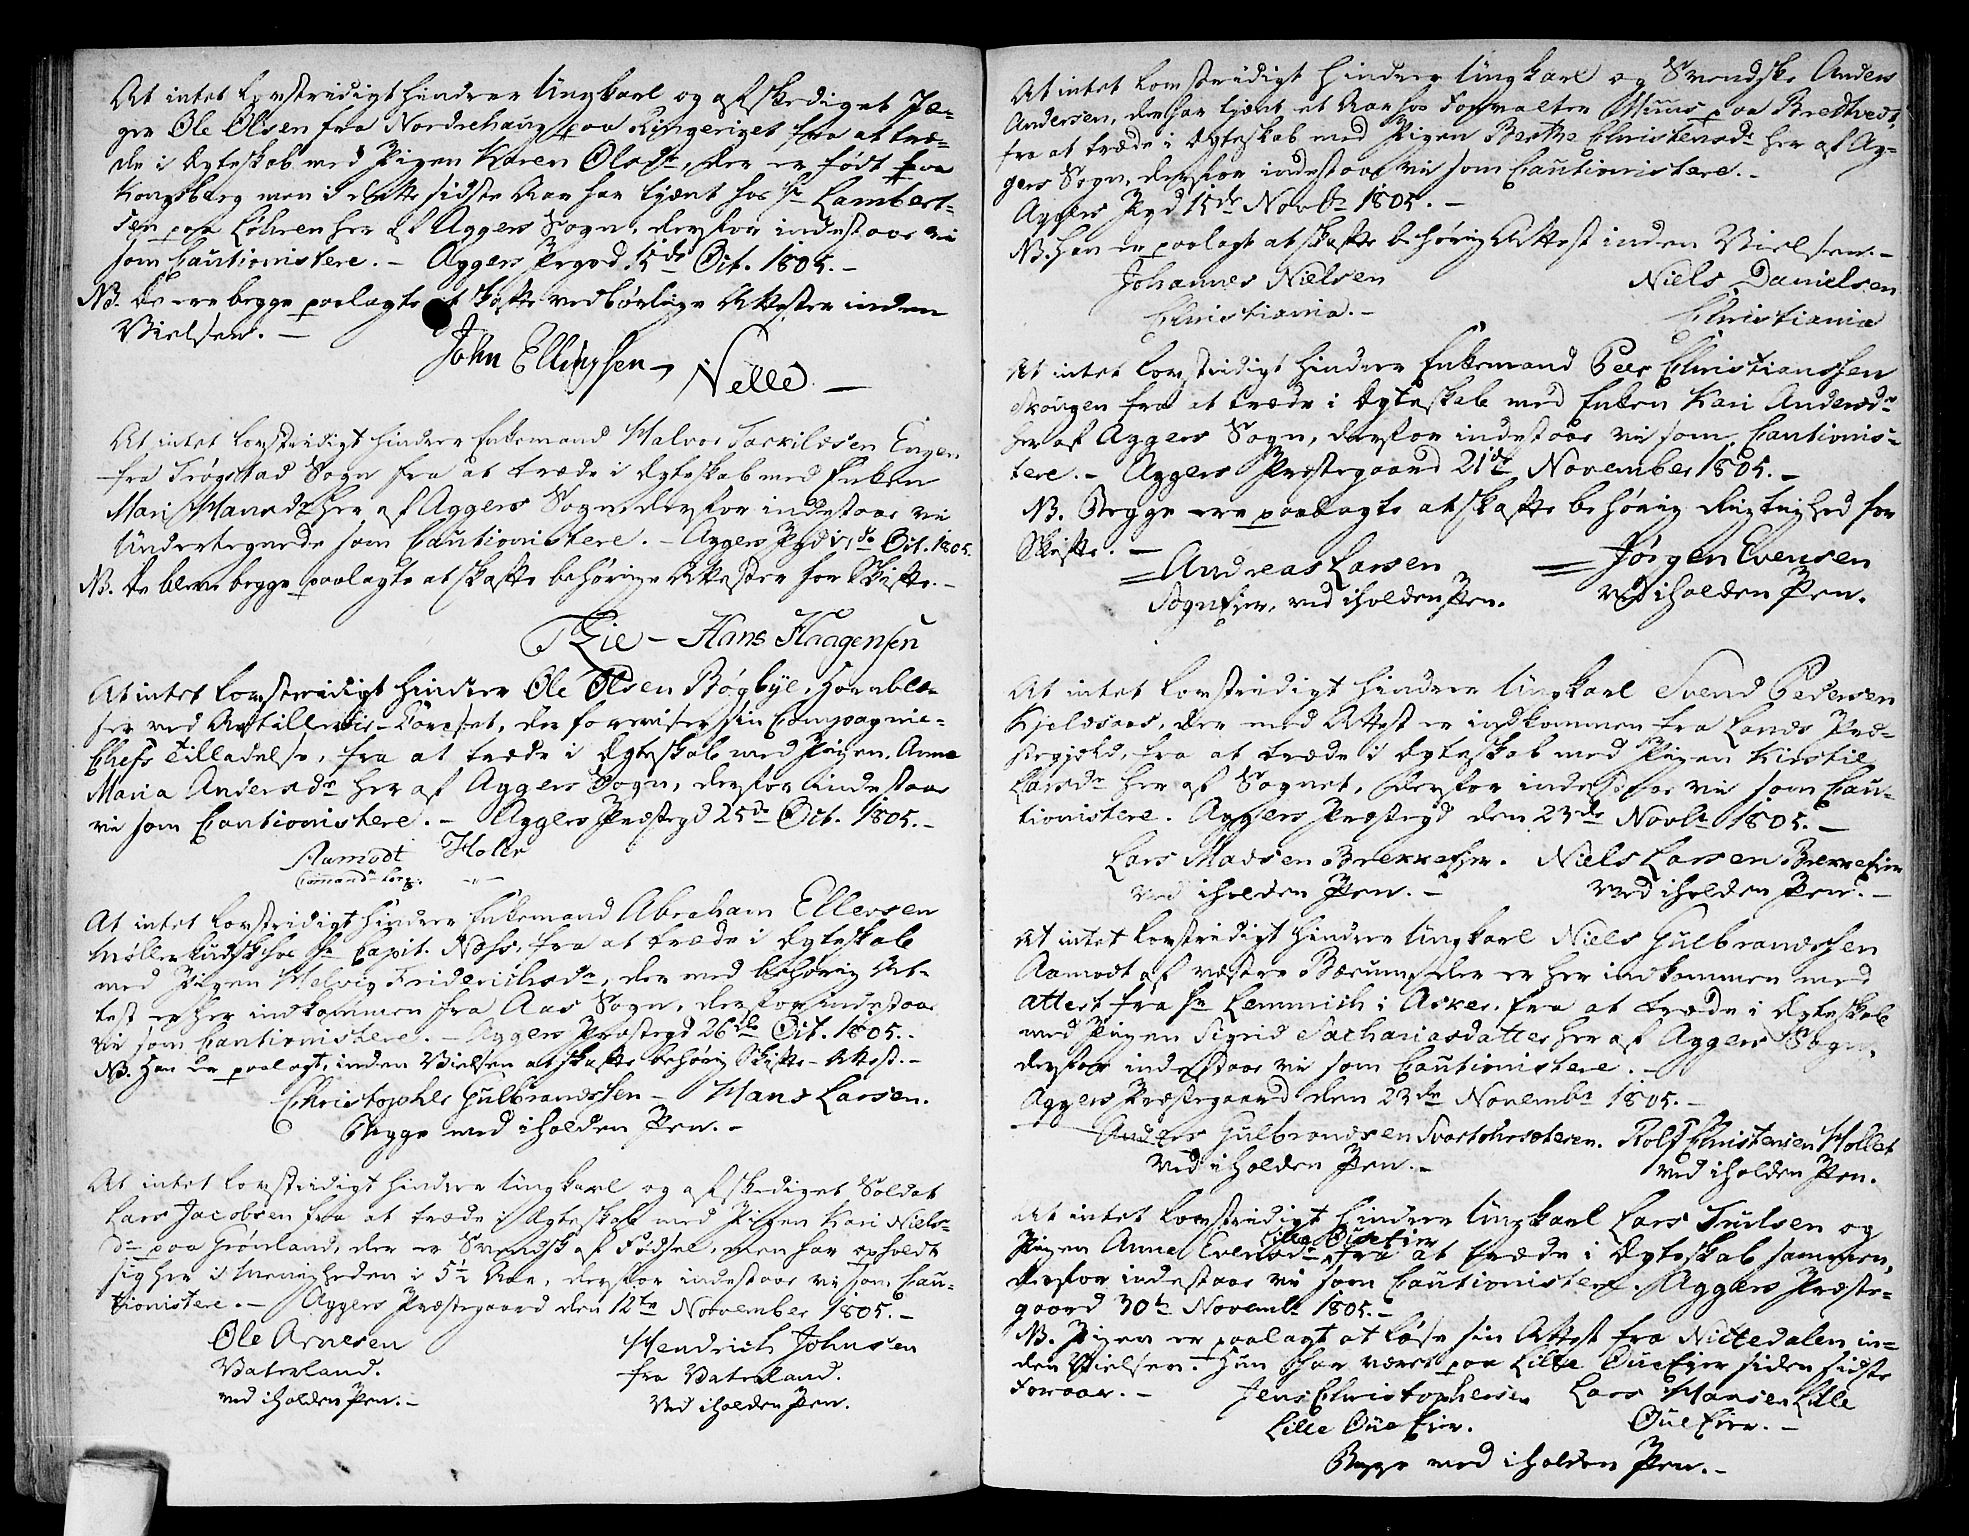 At intet lovstridigt hindrer Ungkarl og afskediget Jæ-
ger Ole Olsen fra Nordrehaug paa Ringeriget fra at træ-
de i Ægteskab med Pigen Karen Olsdr, der er født paa
Kongsberg men i dette sidste Aar har tjænt hos Hr Lambert-
sen paa Løhren her af Aggers Sogn, derfor indestaae vi
som Cautionistere. - Aggers Prgrd. 15de Oct. 1805. -
NB. De ere begge paalagte at skaffe vedbørlige Attester inden
Vielsen. -
John Ellingsen, Nelle. -
At intet lovstridigt hindrer Enkemand Halvor Torkildsen Engen
fra Trøgstad Sogn fra at træde i Ægteskab med Enken
Mari Hansdr her af Aggers Sogn derfor indestaae vi
Undertegnede som Cautionistere. - Aggers Prgd de Oct. 1805.
NB. De blev begge paalagte at skaffe behørige Attester for Skifte. -
Hans Haagensen
At intet lovstridigt hindrer Ole Olsen Bøgbye, Hornblæ-
ser ved Artillerie-Corpset, der foreviser sin Compagnie-
Chefs Tilladelse, fra at træde i Ægteskab med Pigen Anne
Maria Andersdr her af Aggers Sogn, derfor indestaae
vi som Cautionistere. - Aggers Præstegd 25de Oct. 1805. -
Aamodt Holer
Command. Serg.
At intet lovstridigt hindrer Enkemand Abraham Ellevsen
Møllerkudsk hos Hr Capit. Næss, fra at træde i Ægteskab
med Pigen Helvig Friderichsdr, der med behørig At-
test er her indkommen fra Aas Sogn, derfor indestaae
vi som Cautionistere. - Aggers Præstegd 26de Oct. 1805. -
NB. Han er paalagt, inden Vielsen at skaffe behørig Skifte-Attest. -
Christopher Gulbrandssen - Hans Larsen.
Begge med iholden Pen. -
At intet lovstridigt hindrer Ungkarl og afskediget Soldat
Lars Jacobsen fra at træde i Ægteskab med Pigen Kari Niels-
dr paa Grønland, der er Svendsk af Fødsel, men har opholdt
sig her i Menigheden i 5½ Aar, derfor indestaae vi som Cau-
tionistere. - Aggers Præstegaard den 12te November 1805. -
Ole Arnesen Hendrich Johnsen
Vaterland. fra Vaterland.
ved iholden Pen. - Ved iholden Pen.
At intet lovstridigt hindrer Ungkarl og Svendske Anders
Andersen, der har tjent et Aar hos Forvalter Muus paa Bredtvedt,
fra at træde i Ægteskab med Pigen Berthe Christensdr her af Ag-
gers Sogn, derfor indestaae vi som Cautionistere. -
Aggers Prgd 15de Novbr 1805. -
NB. Han er paalagt at skaffe behørig Attest inden Vielsen. -
Johannes Nielsen Niels Danielsen
Christiania. - Christiania
At intet lovstridigt hindrer Enkemand Peer Christianssen
Skougen fra at træde i Ægteskab med Enken Kari Andersdr
her af Aggers Sogn, derfor indestaae vi som Cautionis-
tere. - Aggers Præstegaard 21de November 1805. -
NB. Begge ere paalagte at skaffe behørig Rigtighed for
Skifte. -
Andreas Larsen Jørgen Evensen
Sognsejer, ved iholden Pen. ved iholden Pen.
At intet lovstridigt hindrer Ungkarl Svend Pedersen
Kjeldsaas, der med Attest er indkommen fra Lands Præ-
stegjeld, fra at træde i Ægteskab med Pigen Kirstie
Larsdr her af Sognet, derfor indestaae vi som Cau-
tionistere. Aggers Præstegd den 23de Novbr 1805. -
Lars Madsen Brekkeejer. Niels Larsen Brekkeejer
ved iholden Pen. - ved iholden Pen. -
At intet lovstridigt hindrer Ungkarl Niels Gulbrandssen
Aamodt af vestre Bærum, der er her indkommen med
Attest fra Hr Lemmich i Asker, fra at træde i Ægteskab
med Pigen Sigrid Sachariasdatter her af Aggers Sogn,
derfor indestaae vi som Cautionistere. -
Aggers Præstegaard den 23de Novembr 1805. -
Anders Gulbrandsen Svartohrsæteren. Rolf Christensen Hollet
Ved iholden Pen. - ved iholden Pen.
At intet lovstridigt hindrer Ungkarl Lars Trulsen og
Lille Oueejer
Pigen Anne Evensdr fra at træde i Ægteskab sammen,
derfor indestaae vi som Cautionistere. Aggers Præste-
gaard 30te Novembr 1805. -
NB. Pigen er paalagt at løse sin Attest fra Nittedalen in-
den Vielsen. Hun har været paa Lille Oueejer siden sidste
Foraar. - Jens Christophersen Lars Hansen Lille
Lille Oueejer. Oueejer. -
Begge med iholden Pen. -